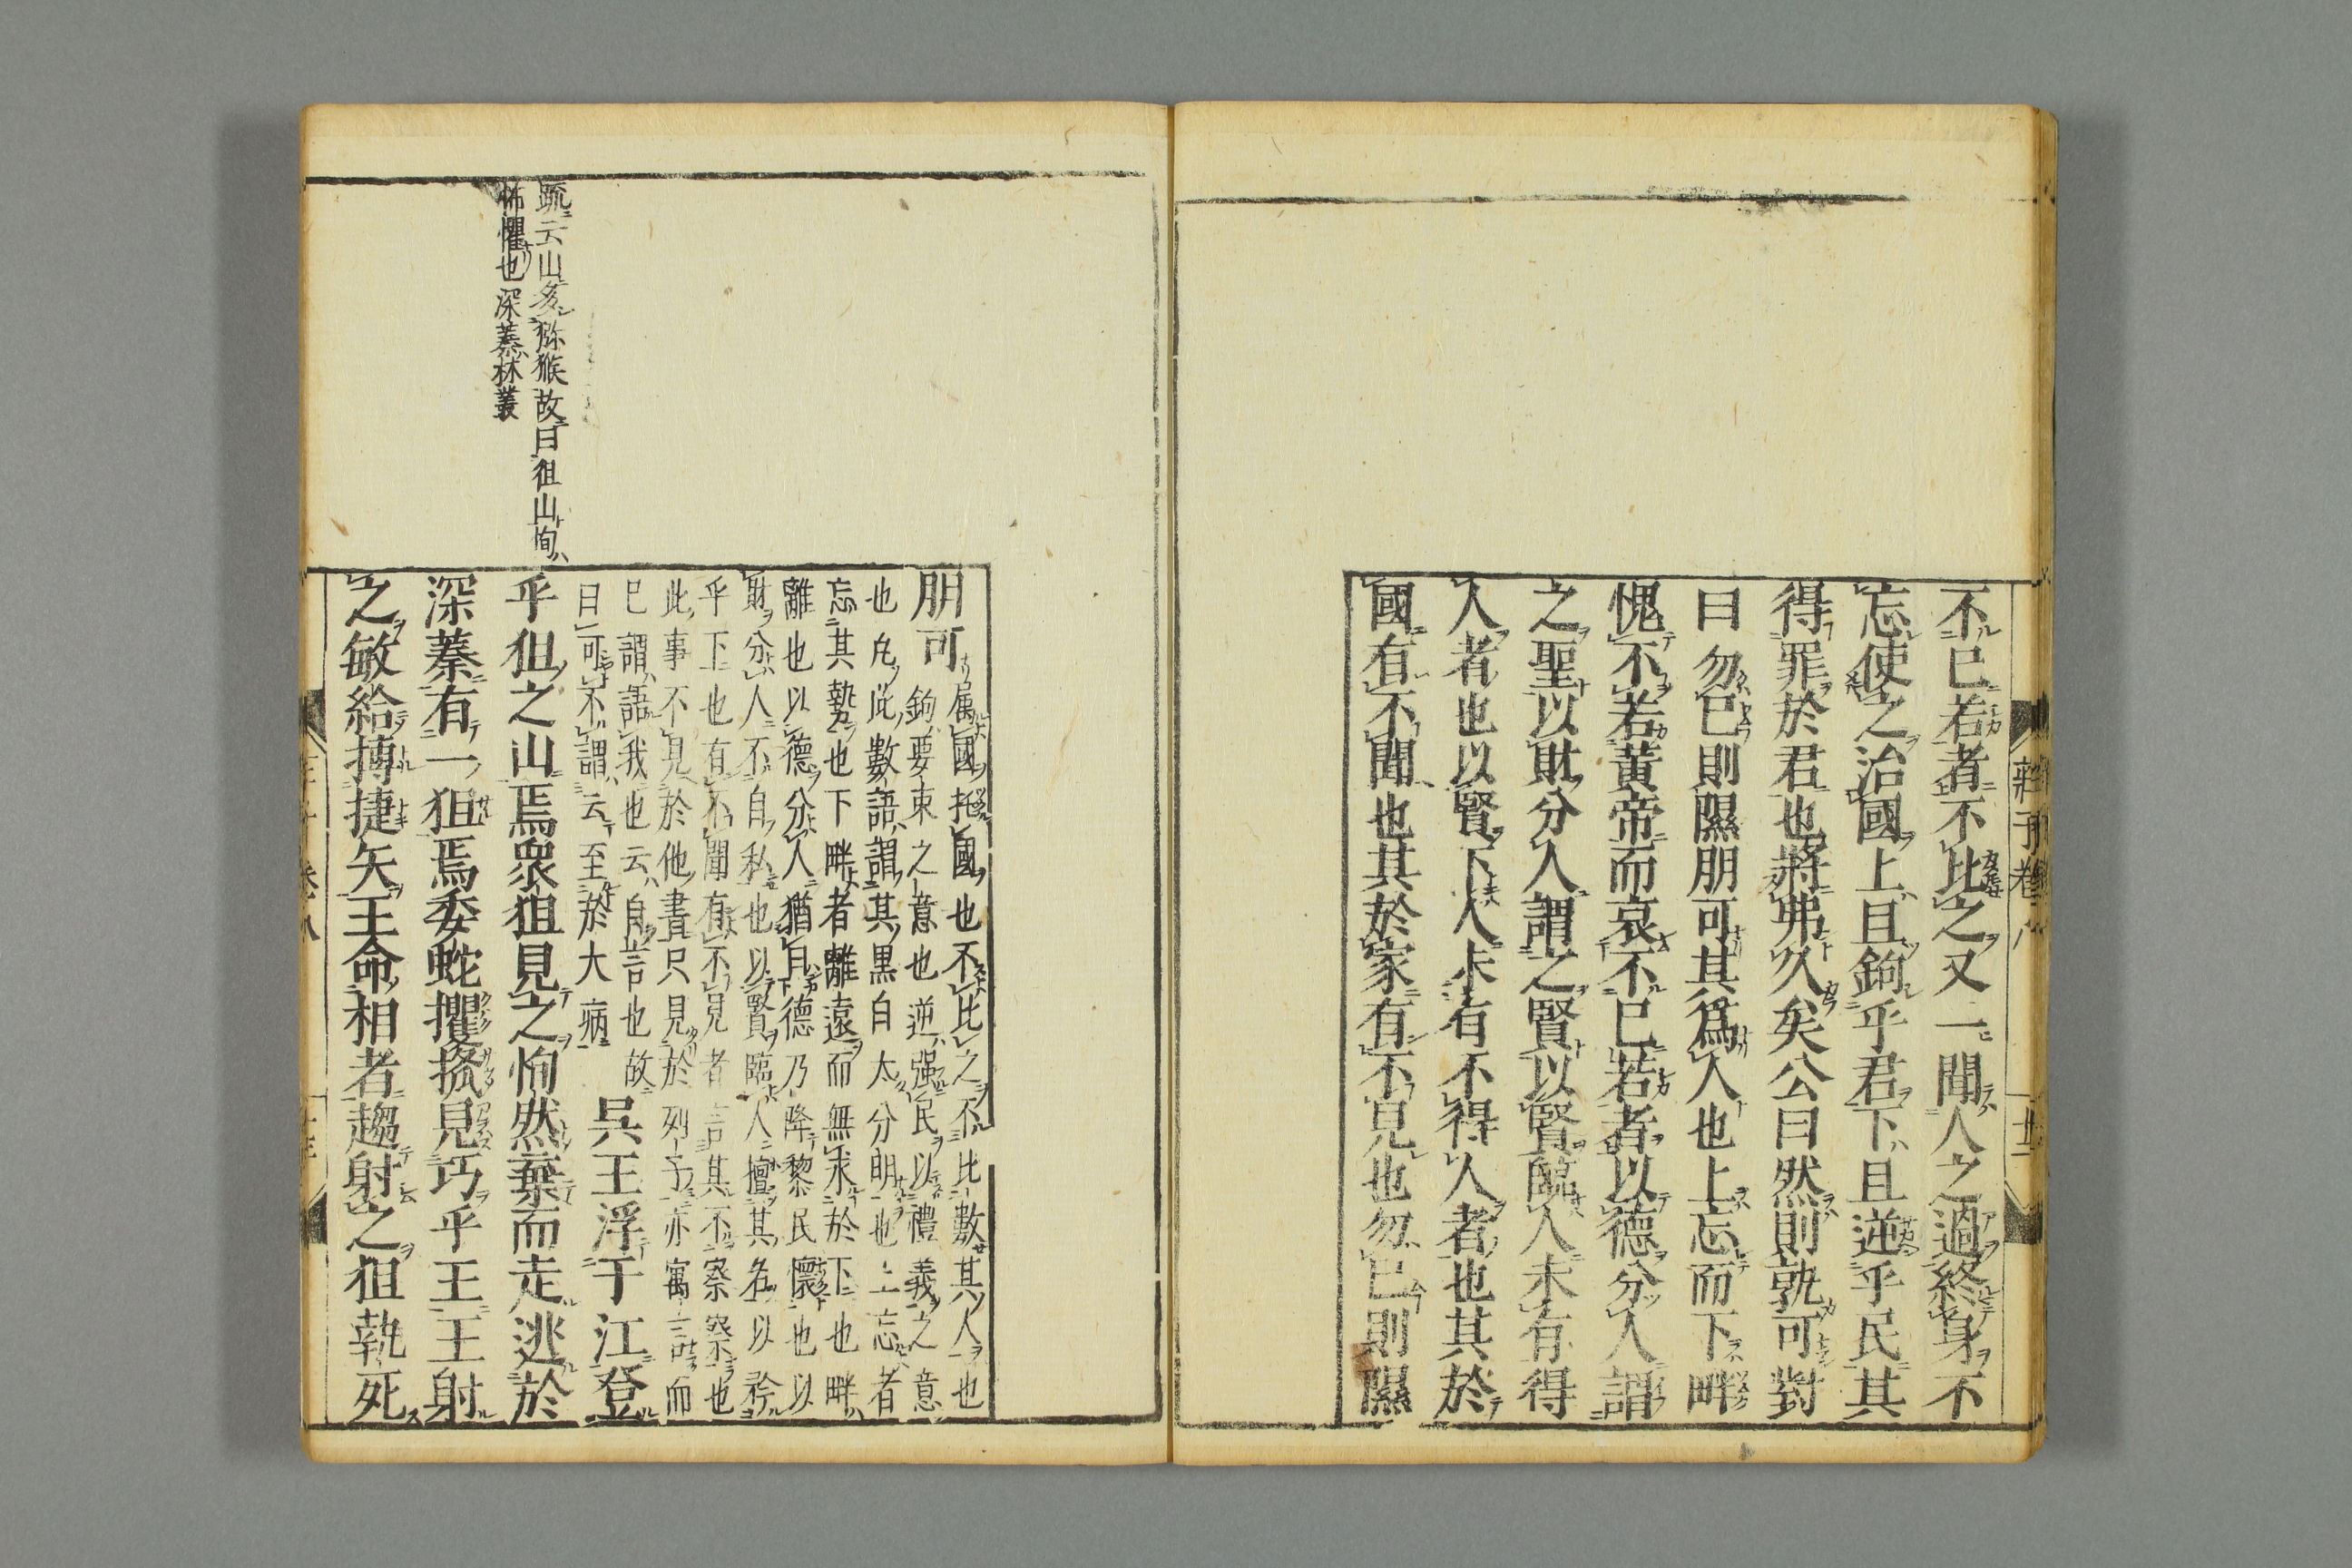 不已若者不比之又一聞人之過終身不
忘使之治國上且鉤乎君下且逆乎民其
得罪於君也將弗久矣公曰然則孰可對
曰勿已則隰朋可其爲人也上忘而下畔
愧不若黃帝而哀不已若者以德分人謂
之聖以財分人謂之賢以賢臨人未有得
人者也以賢下人未有不得人者也其於
國有不聞也其於家有不見也勿已則隰
朋可
属國托國也不比之不比數其人也
鉤要束之意也逆强民以禮義之意
也凢此數語謂其黒白太分明也上忘者
忘其勢也下畔者離遠而無求於下也畔
離也以德分人猶曰德乃降黎民懷也以
財分人不自私也以賢臨人擅其名以矜
乎下也有不聞有不見者言其不察察也
此事不見於他書只見於列子亦寓言而
已謂語我也云自言也故
曰可不謂云至於大病
吳王浮于江登
乎狙之山焉衆狙見之恂然棄而走逃於
深蓁有一狙焉委蛇攫搔見巧乎王王射
之敏給搏捷矢王命相者趨射之狙執死
疏云山多猕猴故曰狙山恂
怖懼也深蓁林叢
莊子卷八